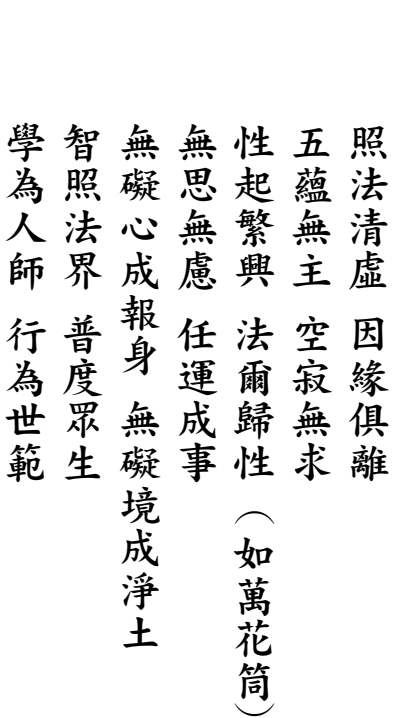 照法清虛 因緣俱離
五蘊無主 空寂無求
性起繁興 法爾歸性 (如萬花筒)
無思無慮 任運成事
無礙心成報身 無礙境成淨土
智照法界 普度眾生
學為人師 行為世範